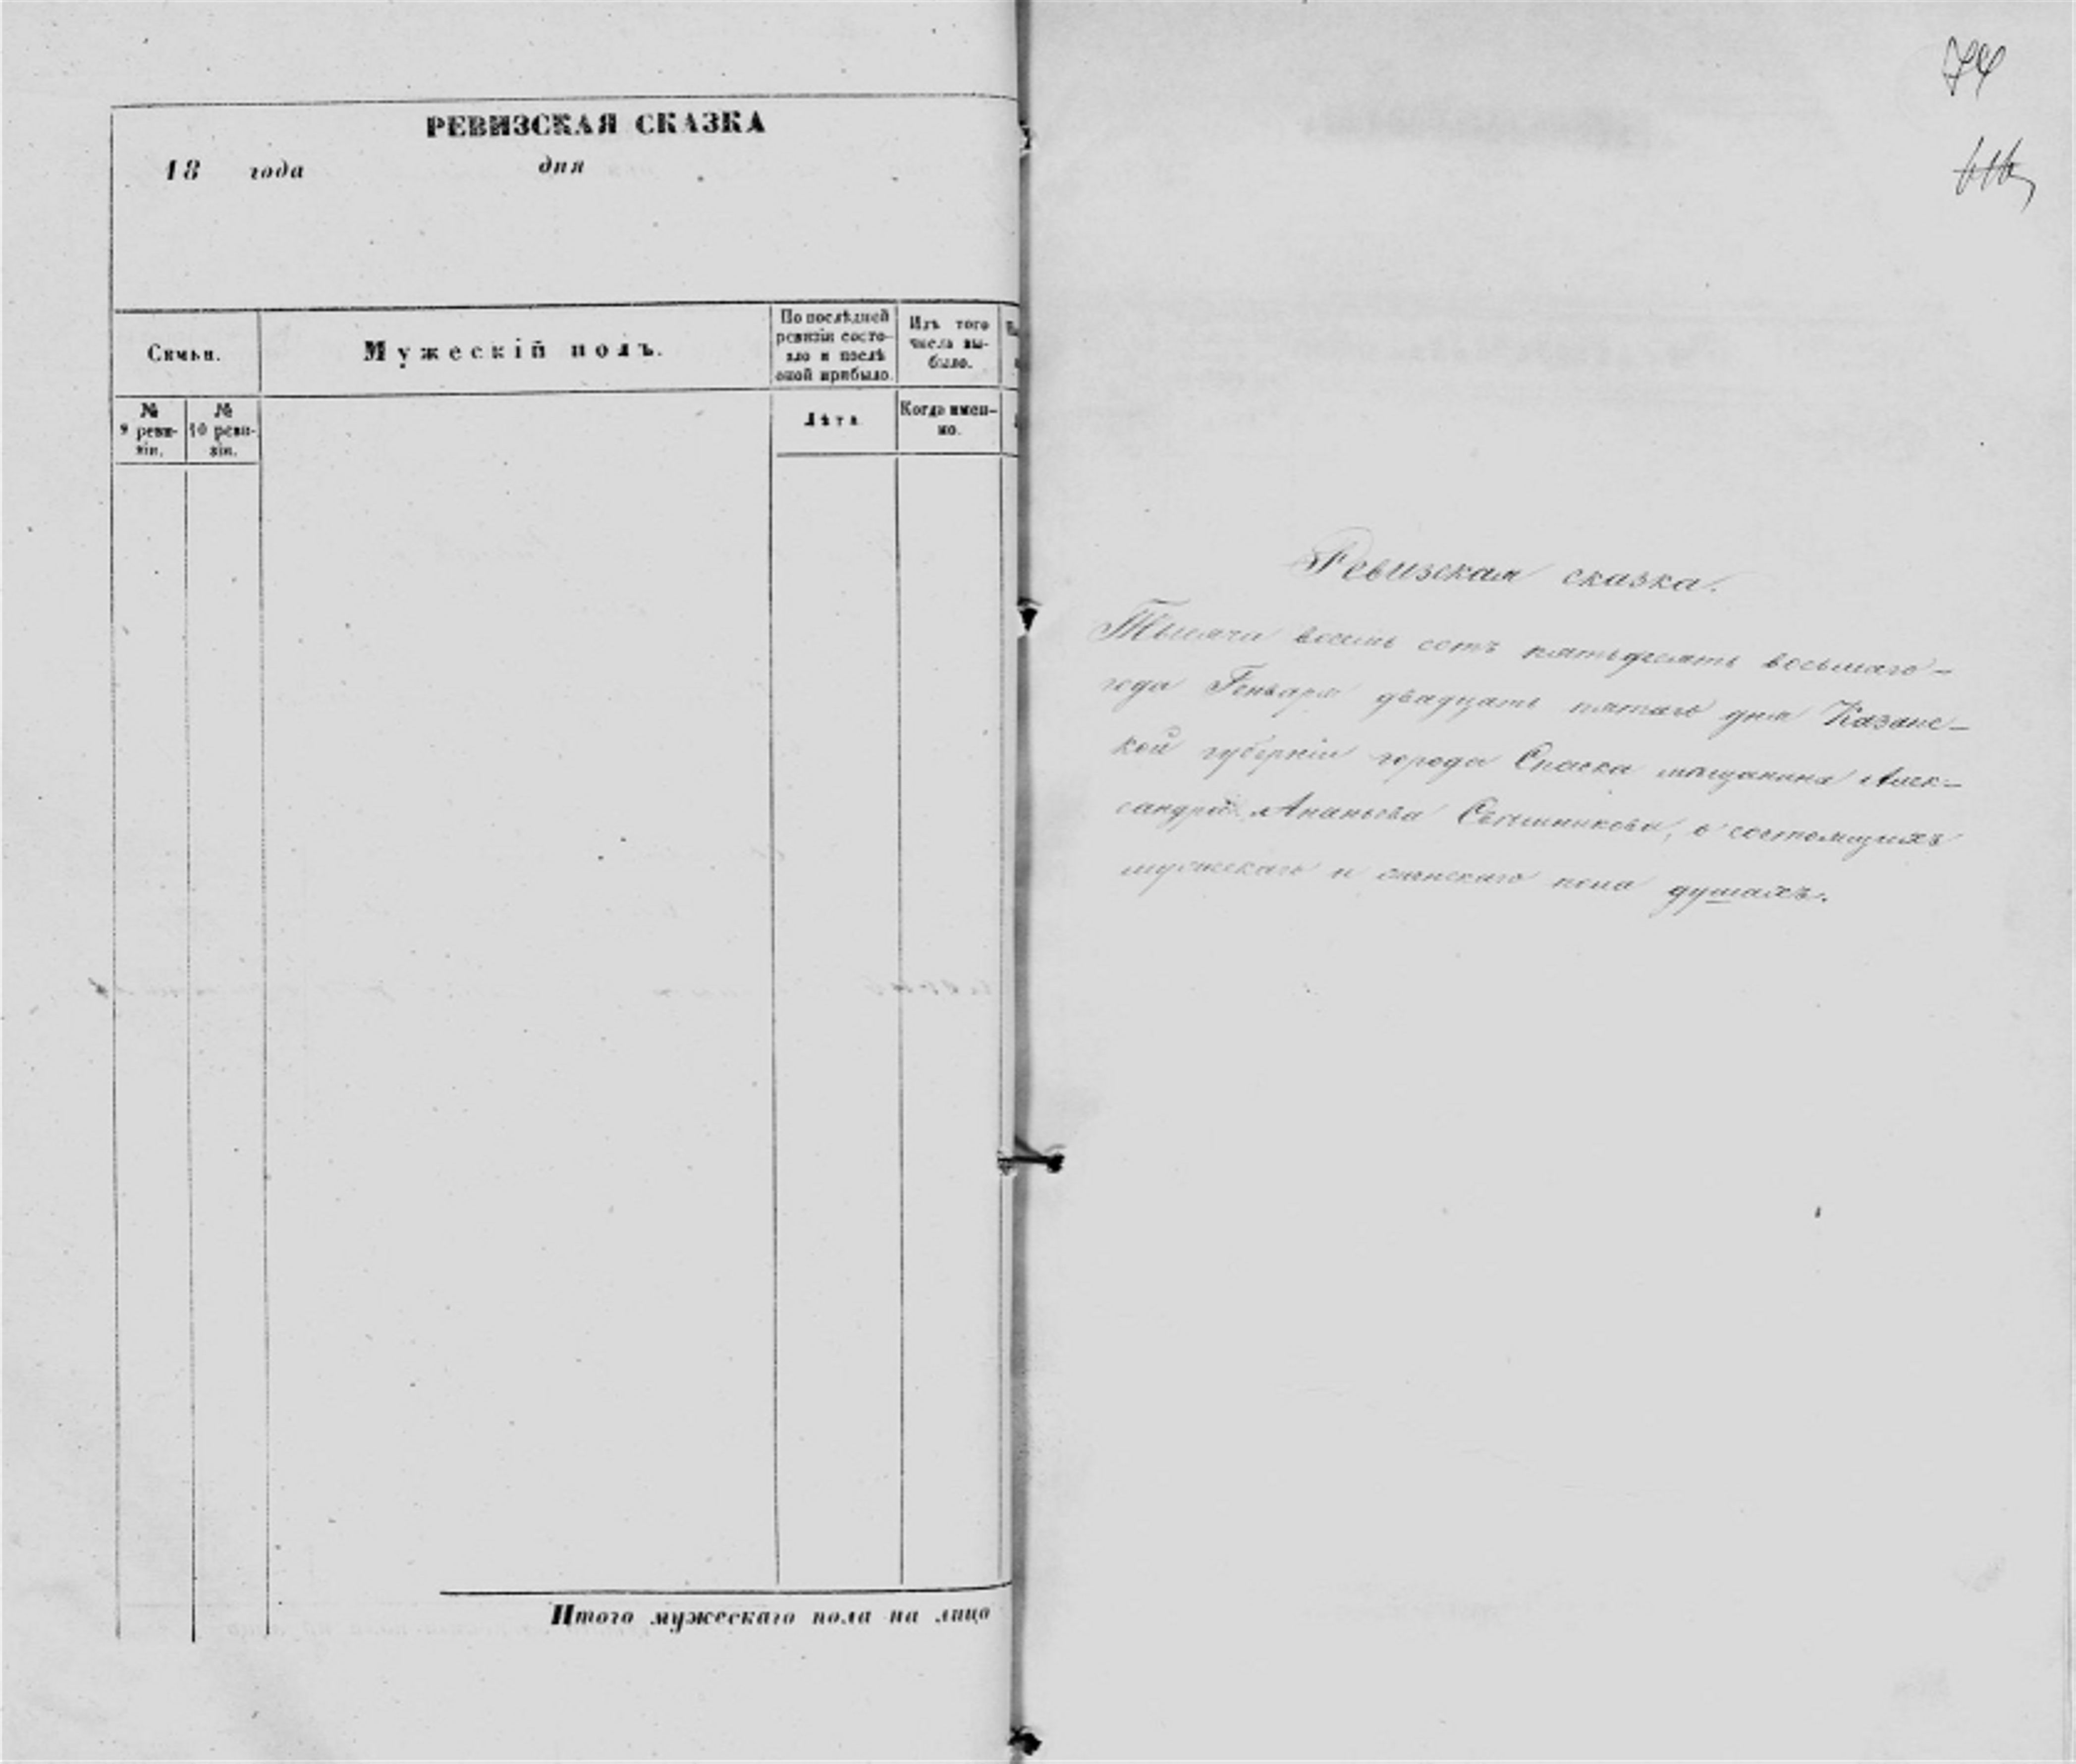 РЕВИЗСКАЯ СКАЗКА
18 года дня
Семьи.
Мужескій полъ.
По послѣдней ревизіи состо-
яло и послѣ
оной прибыло.
Изъ того
числа вы-
было.
№
9 реви-
зіи.
№
10 реви-
зіи.
Лѣта
Когда имен-
но.
Итого мужескаго пола на лицо
74
Ревизская сказка.
Тысяча восемь сотъ пятьдесятъ восьмаго-
года Генваря двадцать пятаго дня Казанс-
кой губерніи города Спаска мѣщанина Алек-
сандра Ананьева о состоящихъ
мужескаго и женскаго пола душахъ.